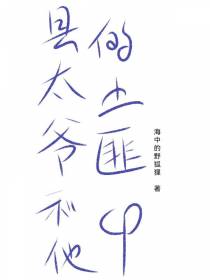 县太爷和他
的土匪φ
海中的野狐狸 著